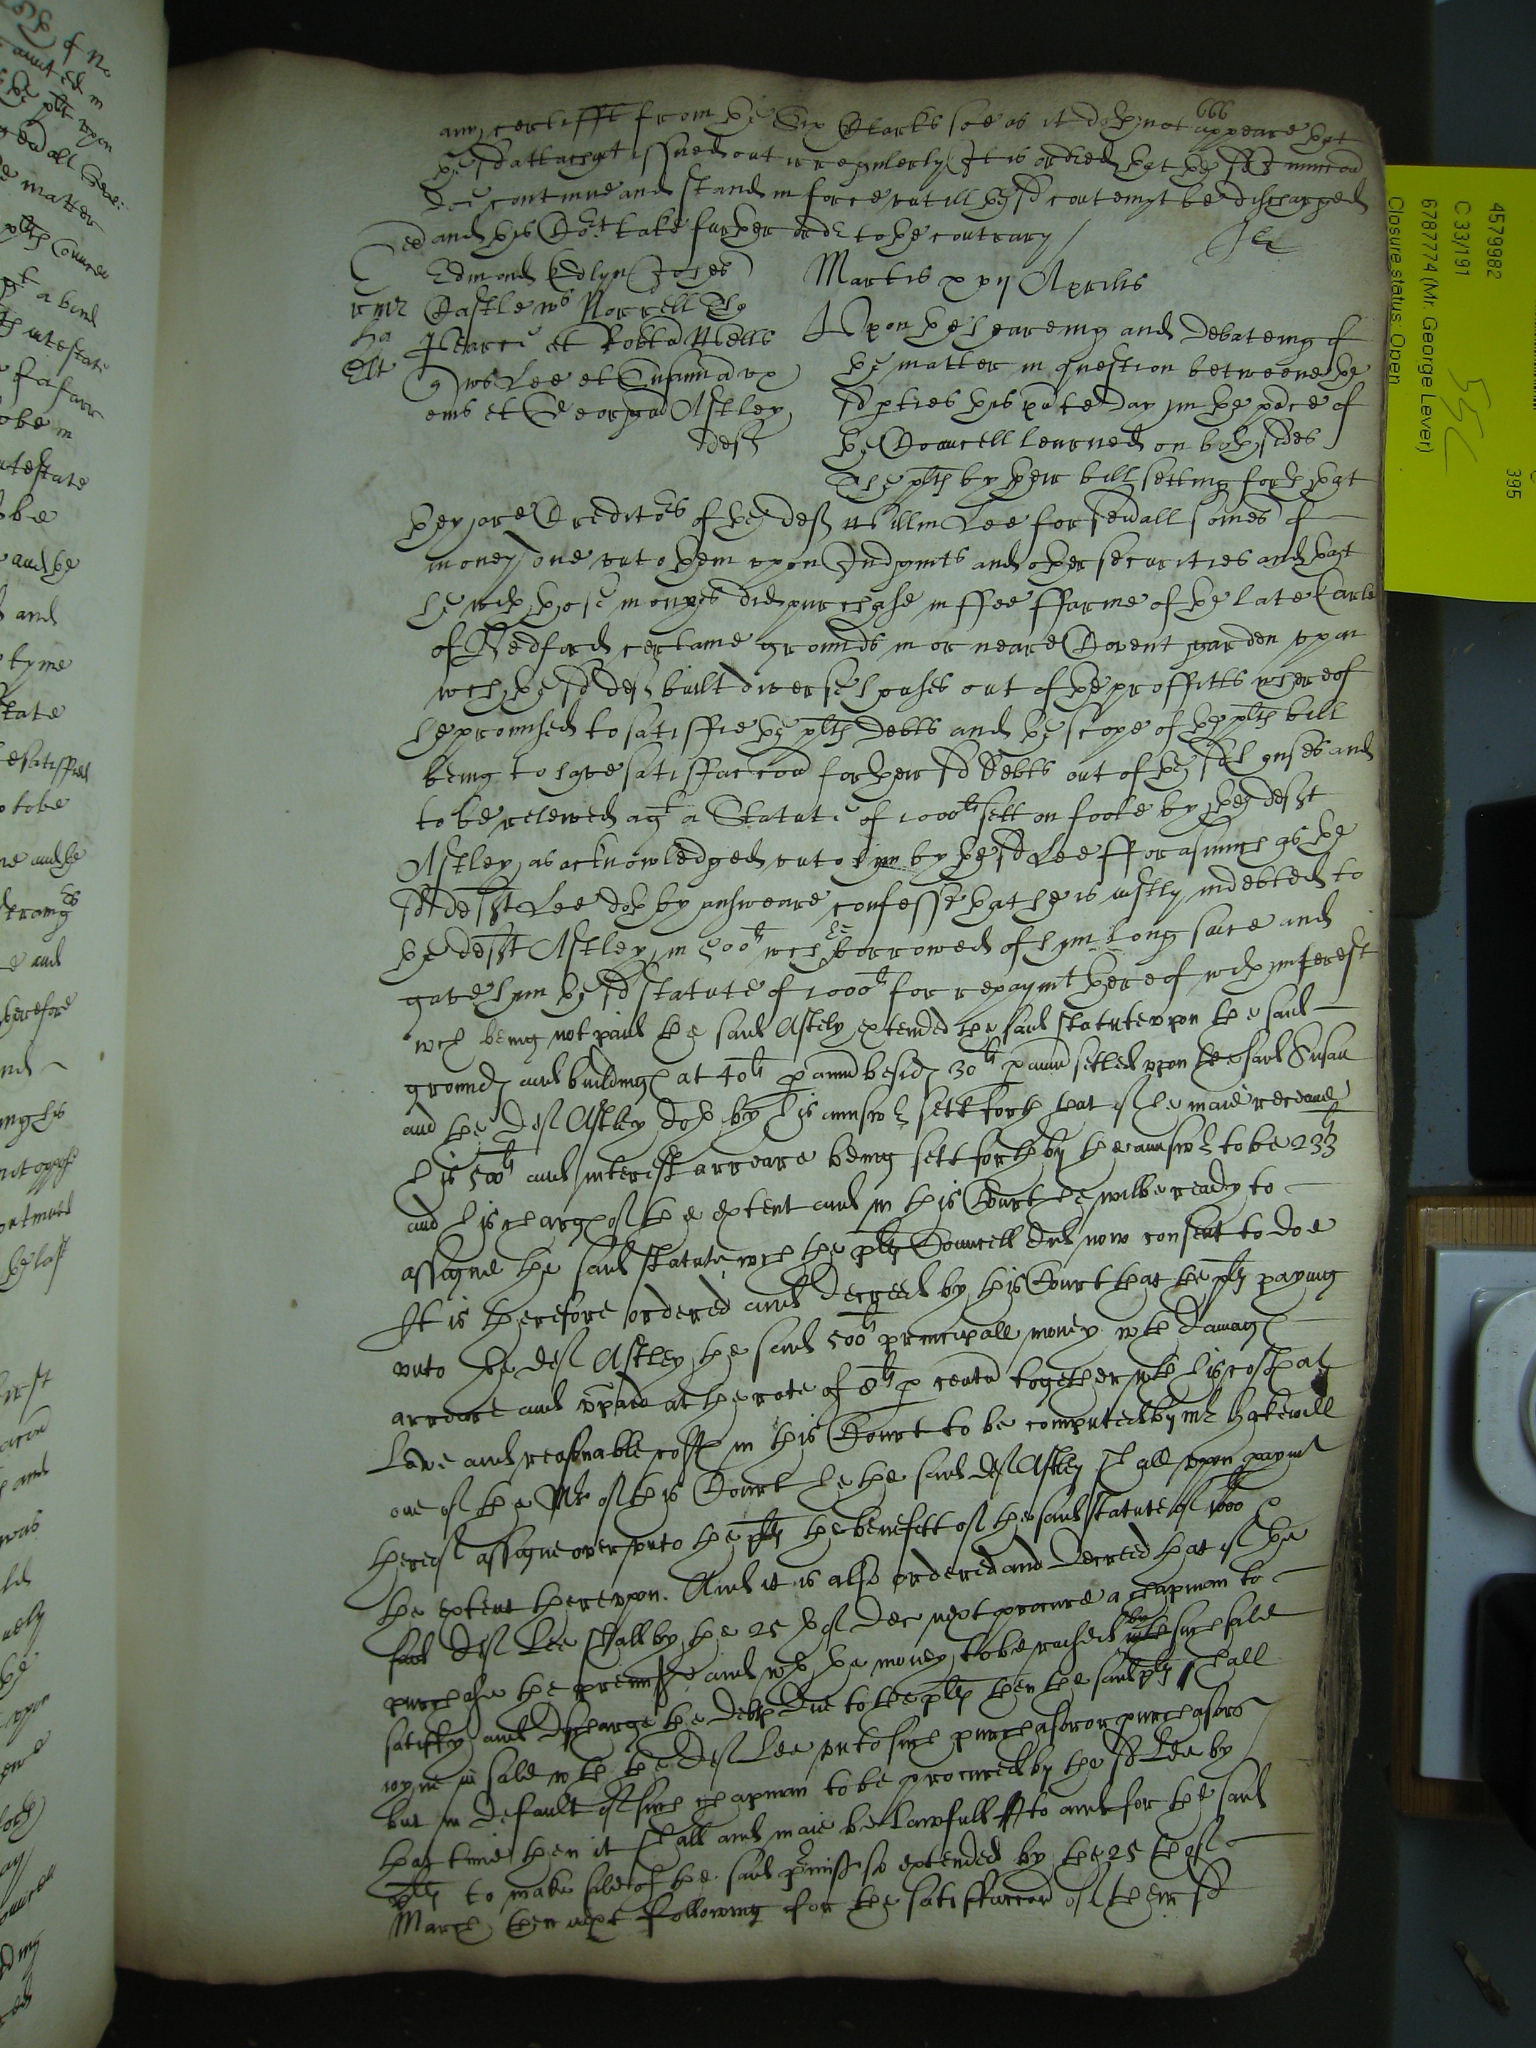 666
any certifft from ye Six Clarks soe as it doth not appeare yat
ye sd attachmt issued out irregulerly It is ordred yat ye sd Iniunccon
doe continue and stand in force untill ye sd contempt be discharged
and this Court take further order to ye contrary
Martis xxij Aprilis
Edmond Edlyn
Castle ws Norrell
Pearce et Robtu Wells
qt ws Lee et Susanna ux
eius et Georgiu Astley
deft
Upon ye heareing and debateing of
ye matter in question betweene ye
sd pties this pnte day in ye pnce of
ye Councell learned on both sides
The plts by their bill setting forth yat
they are Creditors of ye deft Willm Lee for sevall somes of
money due unto them upon Iudgmts and other securities and yat
he with those monyes did purchase in ffee ffarme of ye late Earle
of Bedford certaine grounds in or neare Covent garden upon
wch ye sd deft built diverse houses out of ye proffitts whereof
he promised to satisfie ye plts debts and ye scope of ye plts bill
being to have satisfaccon for their sd debts out of ye sd houses and
to be releived agt a Statute of 1000li sett on foote by ye deft
Astley as acknowledged unto him by ye sd Lee fforasmuch as ye
sd deft Lee doth by answeare confesse that he is iustly indebted to
ye deft Astley in 500li wch he borrowed of him long since and
gave him ye sd statute of 1000li for repaymt thereof with interest
wch being not paid the said Astely extended the said statute upon the said
grounds and buildings at 40li p annu besids 30li p annu setled upon the said Susan
and the deft Astley doth by his answr sett forth that if he maie receave
his 500li and interest arreare being sett forth by the answr to be 233li
and his charges of the extent and in this Court he wilbe ready to
assigne the said statute wch the plts Councell did now consent to doe
It is therefore ordered and decreed by this Court that the plts paying
unto the deft Astley the said 500li principall money with damages
arreare and unpaid at the rate of 8li p centu together with his costs at
Lawe and reasonable costs in this Court to be computed by mr Hakewill
one of the Mrs of this Court he the said deft Astley shall upon paymt
thereof assigne over unto the plts the benefitt of the said statute of 1000li &
the extent thereupon. And it is also ordered and decreed that if the
said deft Lee shall by the 25 th of Dec next procure a chapman to
purchase the premisses and with the money to be raised by such sale
satisfy and discharge the debts due to the plts then the said plts shall
ioyne in sale with the deft Lee unto such purchasor or purchasors
but in default of such chapman to be procured by the sd Lee by
that time then it shall and maie be lawfull to and for the said
plts to make sale of the said pmisses so extended by the 25 th of
March then next following for the satisfaccon of their sd
4579982
C 33/191
6787774 (Mr. George Lever)
Closure status: Open
395